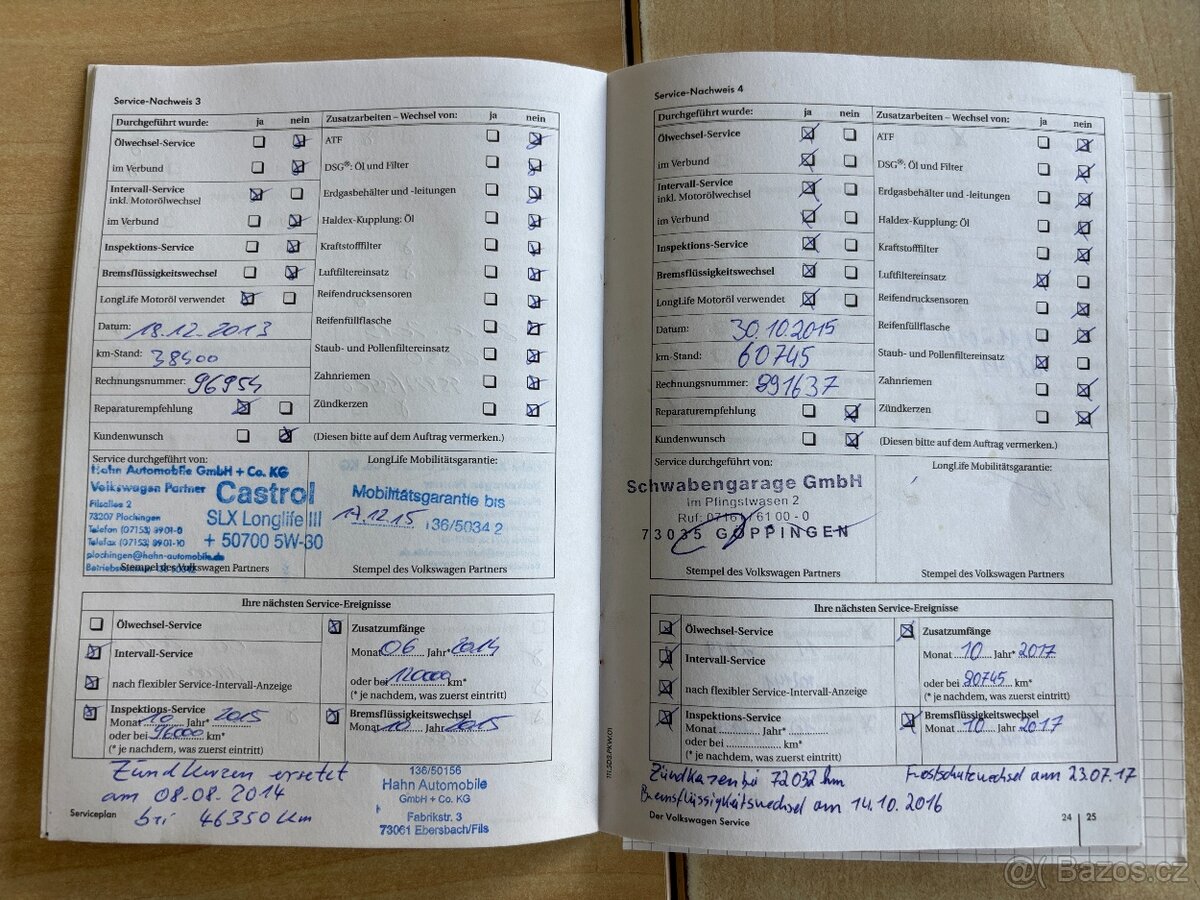 Service-Nachweis 3
Durchgeführt wurde: ja nein Zusatzarbeiten – Wechsel von: ja nein
Ölwechsel-Service ATF
im Verbund DSG®: Öl und Filter
Intervall-Service
inkl. Motorölwechsel Erdgasbehälter und -leitungen
im Verbund Haldex-Kupplung: Öl
Inspektions-Service Kraftstofffilter
Bremsflüssigkeitswechsel Luftfiltereinsatz
LongLife Motoröl verwendet Reifendrucksensoren
Datum: 18.12.2013 Reifenfüllflasche
km-Stand: 38400 Staub- und Pollenfiltereinsatz
Rechnungsnummer: 96954 Zahnriemen
Reparaturempfehlung Zündkerzen
Kundenwunsch (Diesen bitte auf dem Auftrag vermerken.)
Service durchgeführt von: LongLife Mobilitätsgarantie:
Hahn Automobile GmbH + Co. KG
Volkswagen Partner
Filialles 2
73207 Plochingen
Telefon (07153) 8901-0
Telefax (07153) 8901-10
plochingen@hahn-automobile.de
Castrol
SLX Longlife III
+ 50700 5W-30
Mobilitätsgarantie bis
17.12.15 136/5034 2
Stempel des Volkswagen Partners Stempel des Volkswagen Partners
Ihre nächsten Service-Ereignisse
Ölwechsel-Service Zusatzumfänge
Intervall-Service Monat 06 Jahr* 2014
nach flexibler Service-Intervall-Anzeige oder bei 12000 km*
(* je nachdem, was zuerst eintritt)
Inspektions-Service Bremsflüssigkeitswechsel
Monat 10 Jahr* 2015 Monat 10 Jahr 2015
oder bei 96000 km*
(* je nachdem, was zuerst eintritt)
Zündkerzen ersetzt
am 08.08.2014
bei 46350 km
136/50156
Hahn Automobile
GmbH + Co. KG
Fabrikstr. 3
73061 Ebersbach/Fils
Serviceplan
111.5D3.PKW.01
Service-Nachweis 4
Durchgeführt wurde: ja nein Zusatzarbeiten – Wechsel von: ja nein
Ölwechsel-Service ATF
im Verbund DSG®: Öl und Filter
Intervall-Service
inkl. Motorölwechsel Erdgasbehälter und -leitungen
im Verbund Haldex-Kupplung: Öl
Inspektions-Service Kraftstofffilter
Bremsflüssigkeitswechsel Luftfiltereinsatz
LongLife Motoröl verwendet Reifendrucksensoren
Datum: 30.10.2015 Reifenfüllflasche
km-Stand: 60745 Staub- und Pollenfiltereinsatz
Rechnungsnummer: 891637 Zahnriemen
Reparaturempfehlung Zündkerzen
Kundenwunsch (Diesen bitte auf dem Auftrag vermerken.)
Service durchgeführt von: LongLife Mobilitätsgarantie:
Schwabengarage GmbH
Im Pfingstwasen 2
Ruf: 07161 / 61 00 - 0
73035 GÖPPINGEN
Stempel des Volkswagen Partners Stempel des Volkswagen Partners
Ihre nächsten Service-Ereignisse
Ölwechsel-Service Zusatzumfänge
Intervall-Service Monat 10 Jahr* 2017
nach flexibler Service-Intervall-Anzeige oder bei 90745 km*
(* je nachdem, was zuerst eintritt)
Inspektions-Service Bremsflüssigkeitswechsel
Monat Jahr* Monat 10 Jahr 2017
oder bei km*
(* je nachdem, was zuerst eintritt)
Zündkerzen bei 72032 km Frostschutzwechsel am 23.07.17
Bremsflüssigkeitswechsel am 14.10.2016
Der Volkswagen Service 24 25
@( Bazos.cz